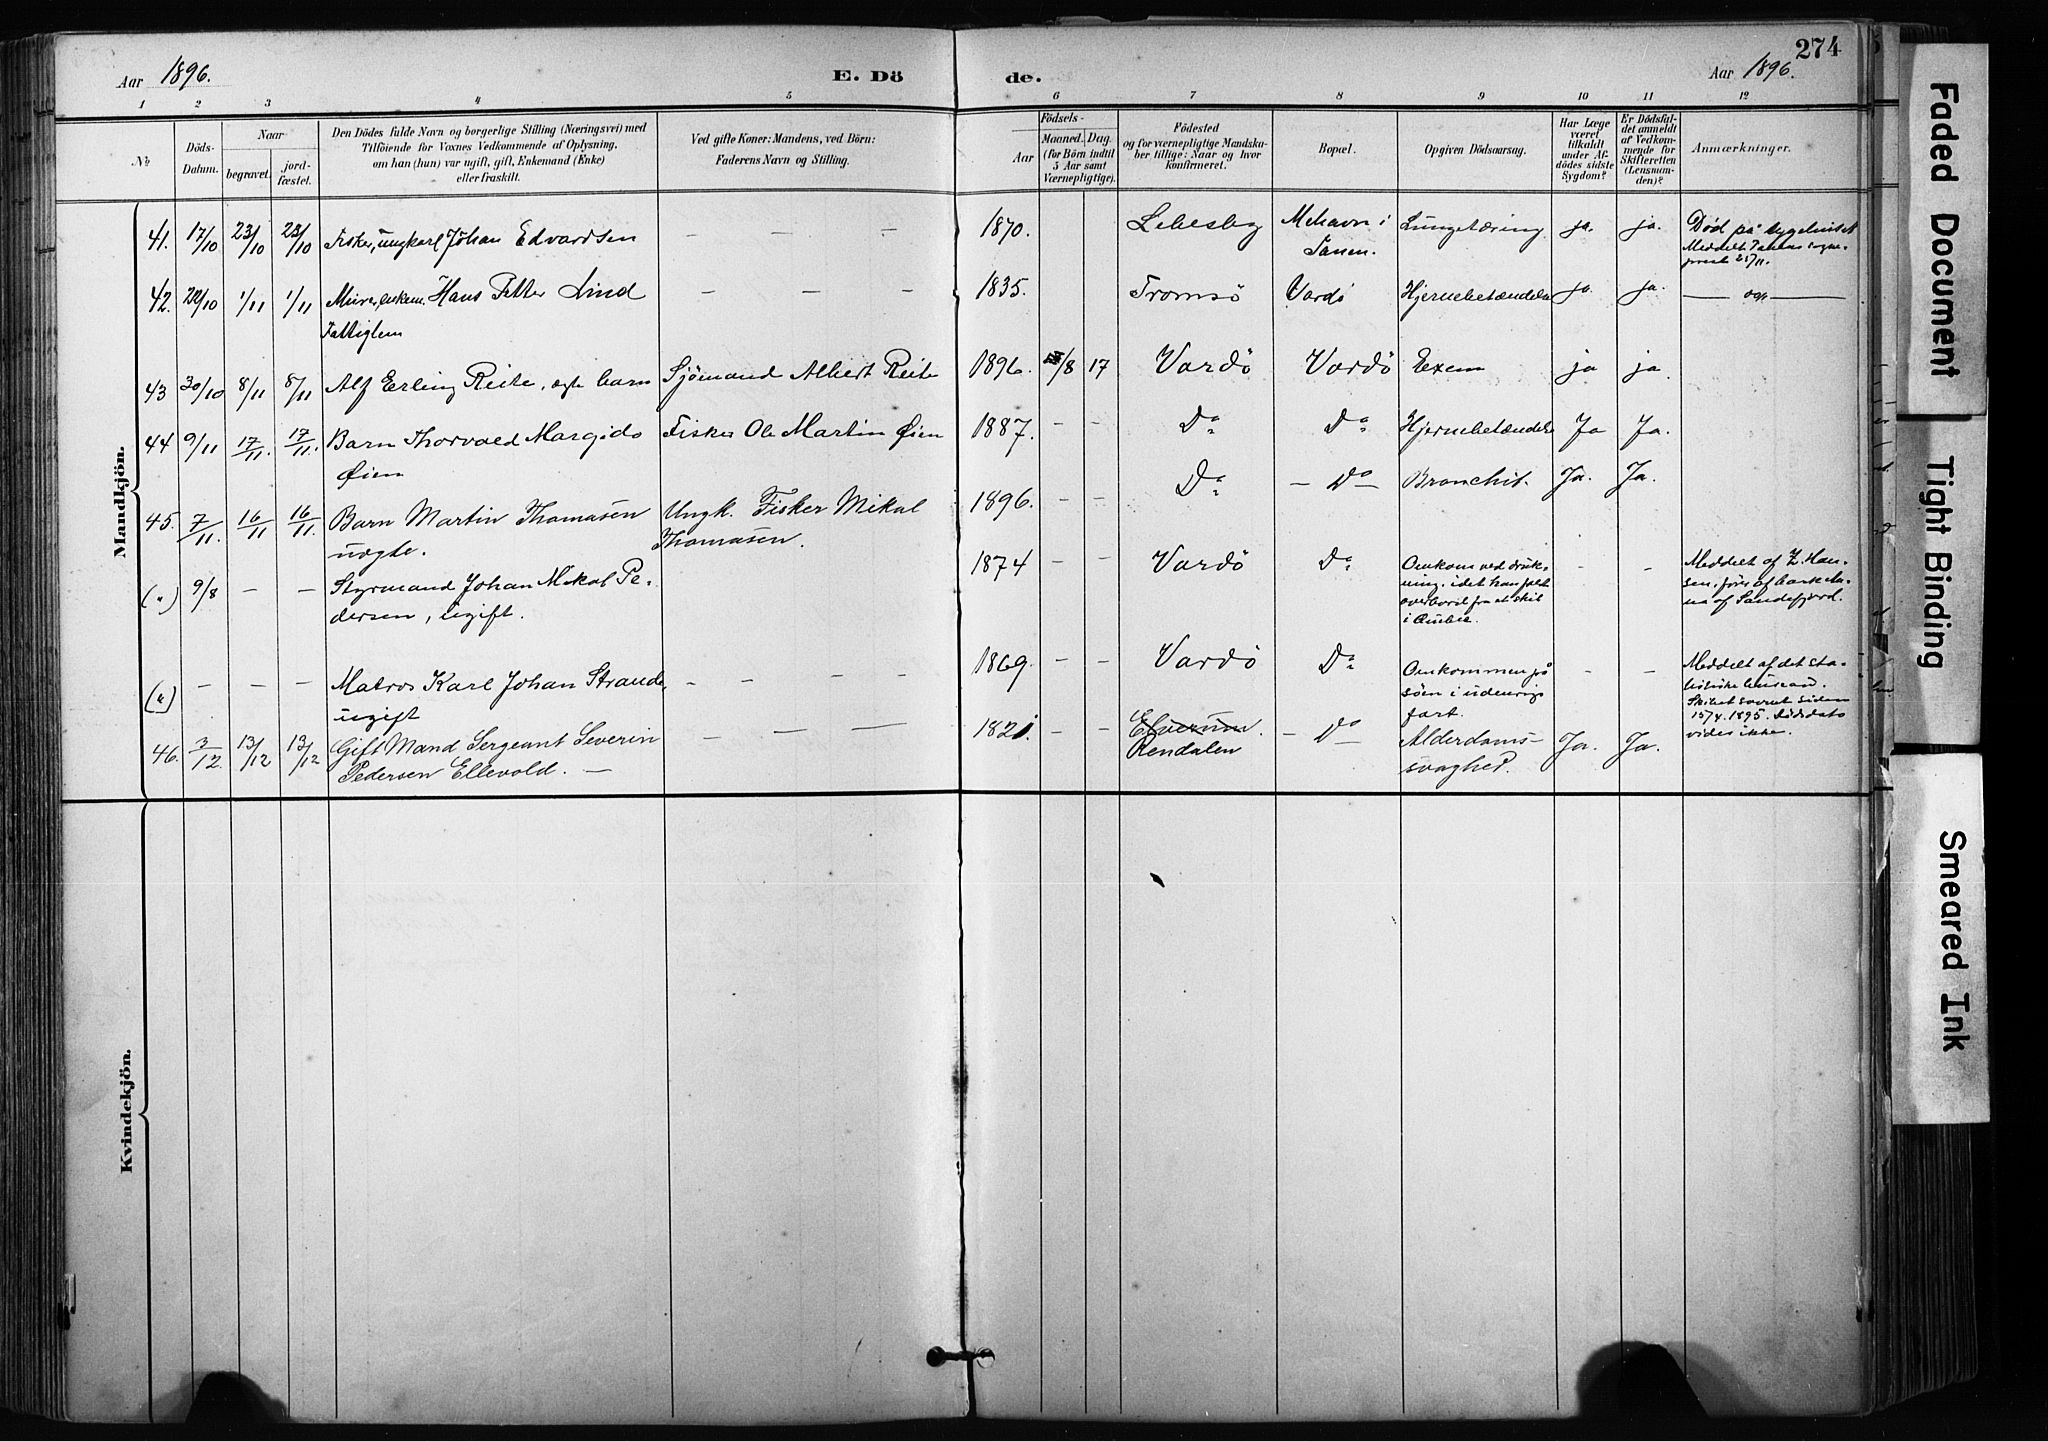 274
Aar 1896.
E. Dö
de.
Aar 1896.
1 2 3 4 5 6 7 8 9 10 11 12
No
Döds-
Datum.
Naar
begravet.
jord-
fæstet.
Den Dödes fulde Navn og borgerlige Stilling (Næringsvei) med
Tilföiende for Voxnes Vedkommende af Oplysning,
om han (hun) var ugift, gift, Enkemand (Enke)
eller fraskilt.
Ved gifte Koner: Mandens, ved Börn:
Faderens Navn og Stilling.
Födsels-
Aar
Maaned. Dag.
(for Börn indtil
5 Aar samt
Værnepligtige).
Födested
og for værnepligtige Mandska-
ber tillige: Naar og hvor
konfirmeret.
Bopæl.
Opgiven Dödsaarsag.
Har Læge
været
tilkaldt
under Af-
dödes sidste
Sygdom?
Er Dödsfal-
det anmeldt
af Vedkom-
mende for
Skifteretten
(Lensman-
den)?
Anmærkninger.
Mandkjön.
41. 17/10 23/10 23/10 Fisker, ungkarl Johan Edvardsen — — — 1870. Lebesby Mehavn i Tanen. Lungetæring. ja. ja. Død på sygehuset
Meddelt Tanens sogne-
prest 21/11.
42. 22/10 1/11 1/11 Murer, enkem. Hans Petter Lind — — — 1835. Tromsö Vardö Hjernebetændelse ja. ja. — og —
Fattiglem
43 30/10 8/11 8/11 Alf Erling Reite, ægte barn Sjömand Albert Reite 1896. /8 17 Vardö Vardö Exem ja ja.
44 9/11 17/11 17/11. Barn Thorvald Margido Fisker Ole Martin Øien 1887. — — Do Do Hjernebetændelse Ja Ja.
Øien
45. 7/11. 16/11 16/11. Barn Martin Thomasen Ungk. Fisker Mikal 1896. — — Do — Do — Bronchit. Ja. Ja.
uægte. Thomasen.
(") 9/8 — — Styrmand Johan Mikal Pe-
dersen, ugift. 1874 — — Vardö Do Omkom ved druk-
ning, idet han faldt
overbord fra et skib
— — Meddelt af Z. Han-
sen, fører af bark An-
na af Sandefjord.
(") — — — Matros Karl Johan Strand,
ugift — — — 1869. — — Vardö Do Omkommen på
söen i udenrigs
fart. — — Meddelt af det sta-
tistiske bureau.
Skibet savnet siden
15/4. 1895. Dödsdato
vides ikke.
46. 3/12. 13/12 13/12 Gift Mand Sergeant Severin — — — 1821. — — Elverum.
Rendalen — Do — Alderdoms-
svaghed. Ja. Ja.
Pedersen Ellevold. —
Kvindekjön.
Faded Document
Tight Binding
Smeared Ink